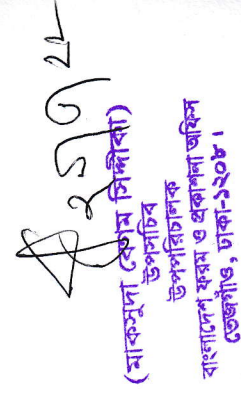 (মাকসুদা বেগম সিদ্দীকা)
উপসচিব
উপপরিচালক
বাংলাদেশ ফরম ও প্রকাশনা অফিস
তেজগাঁও, ঢাকা-১২০৮।